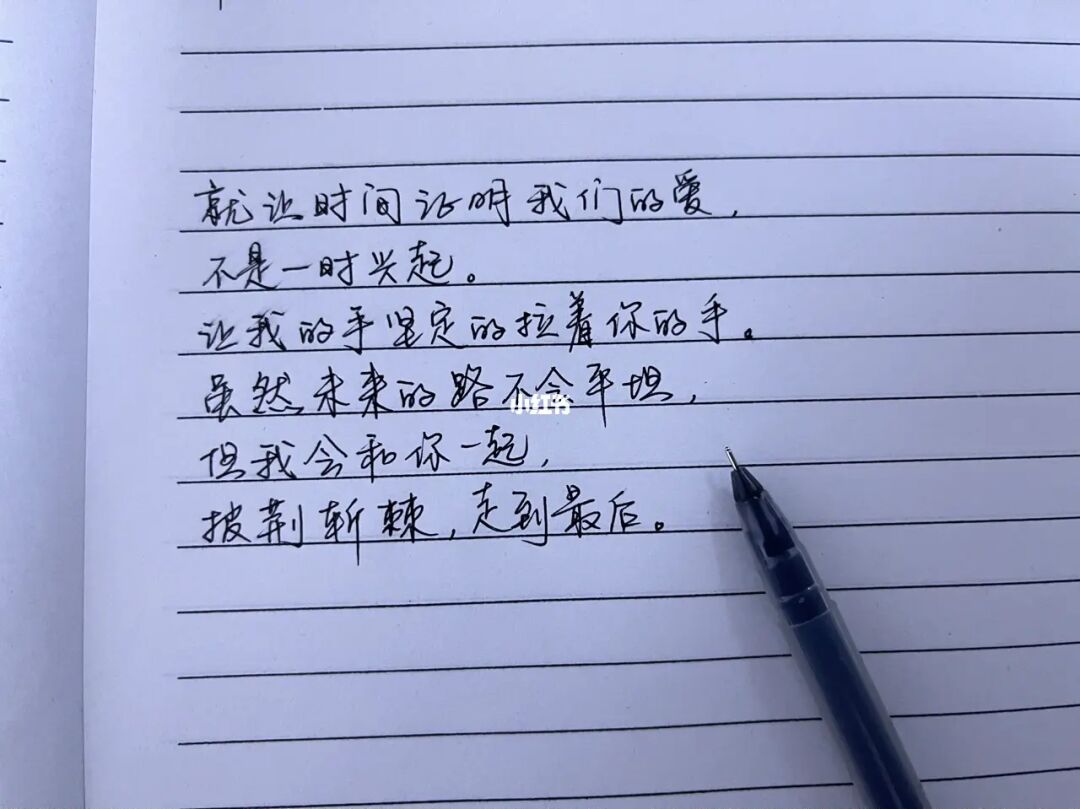 就让时间证明我们的爱，
不是一时兴起。
让我的手坚定的拉着你的手。
虽然未来的路不会平坦，
小红书
但我会和你一起，
披荆斩棘，走到最后。